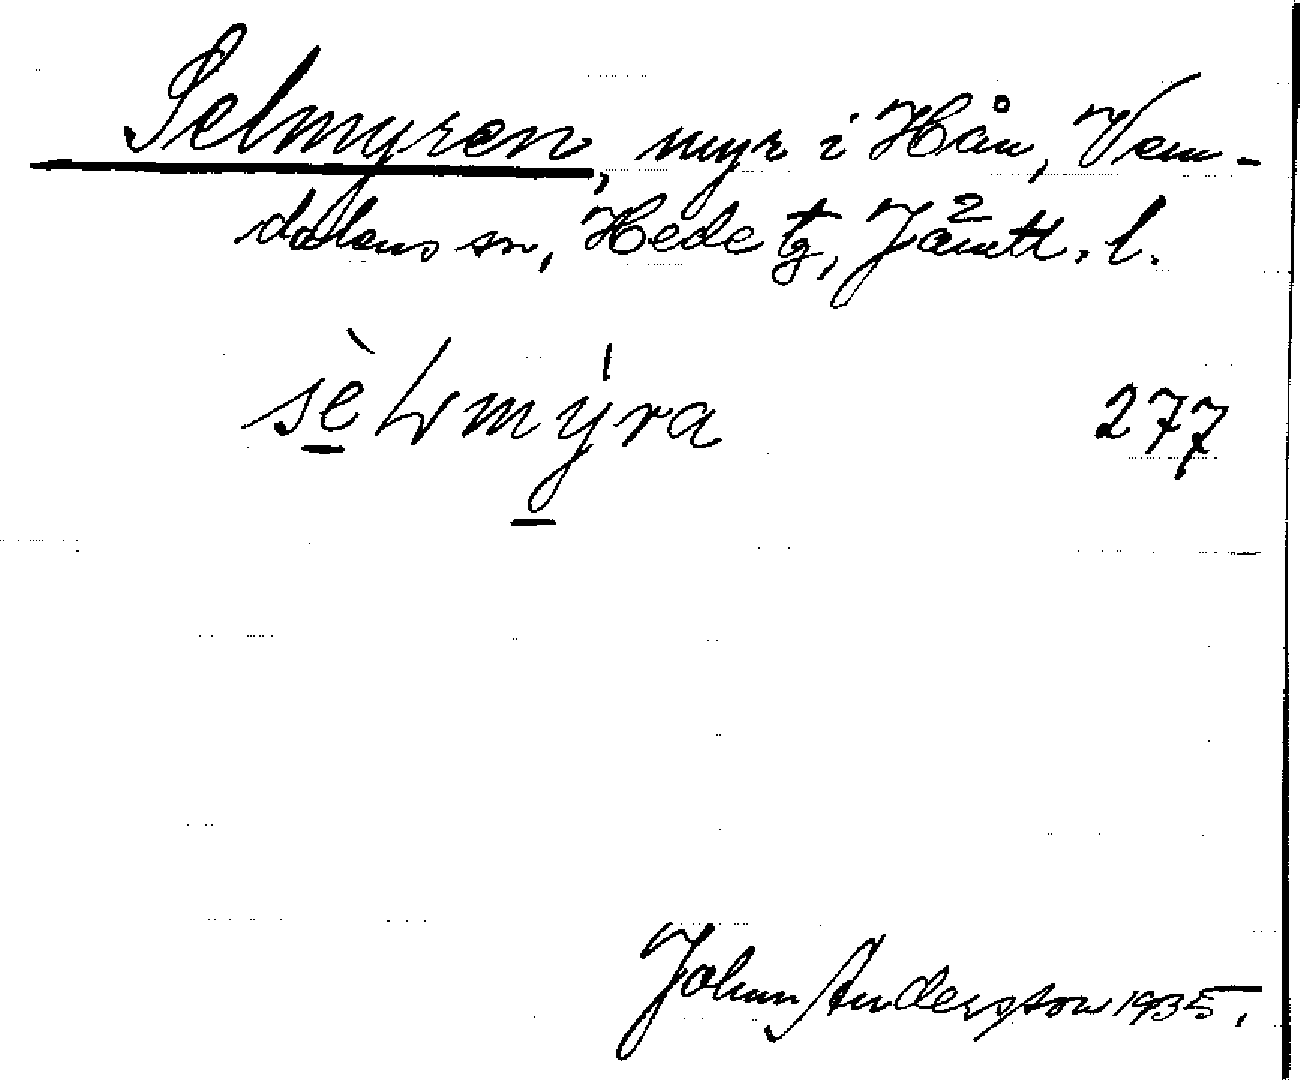 Selmyren, myr i Hån, Vem-
dalens sn, Hede tg, Jämtl. l.
sèlmýra 277
Johan Andersson 1935.